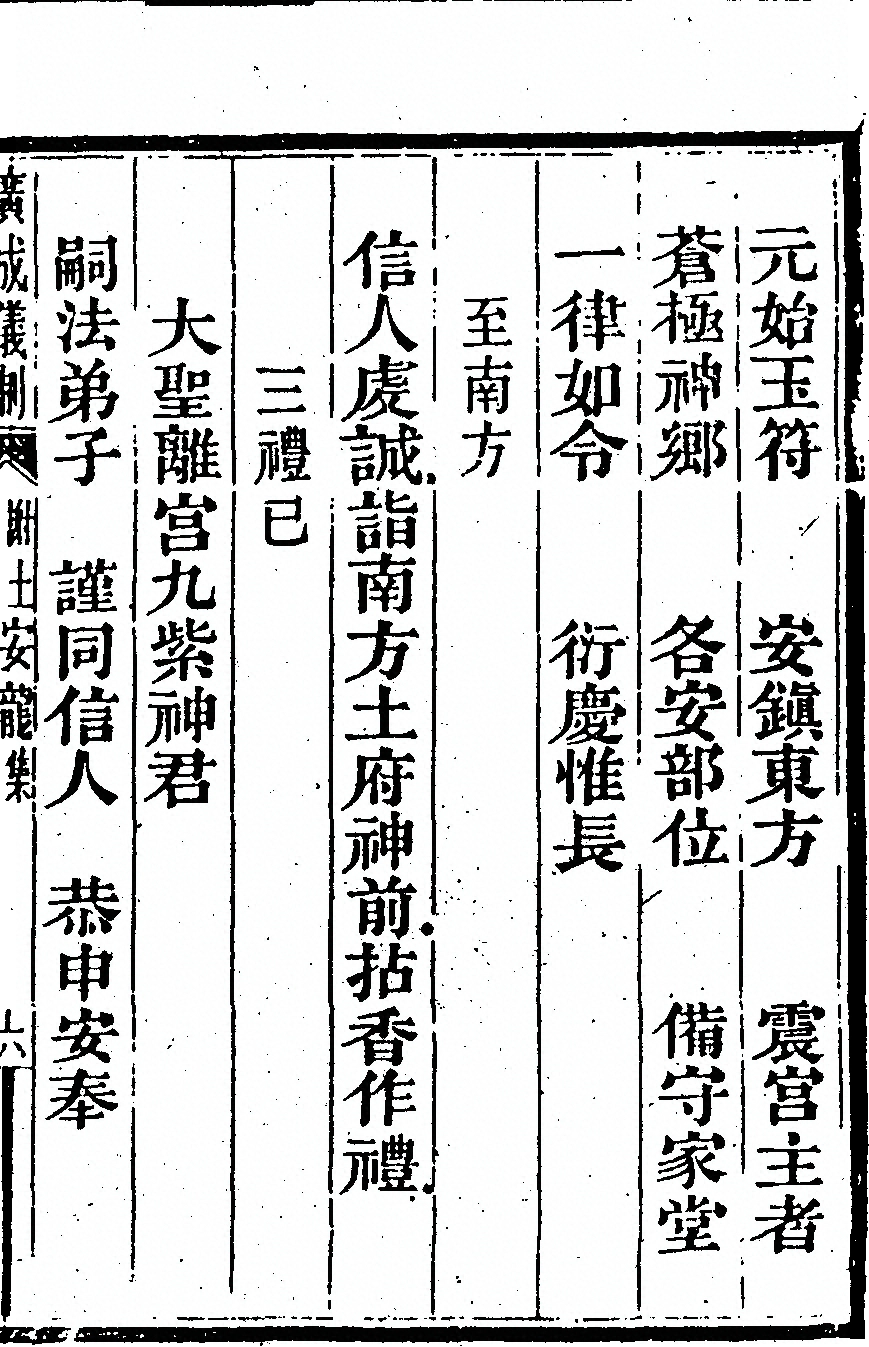 元始玉符　安鎭東方　震宫主者
蒼極神鄉　各安部位　備守家堂
一律如令　衍慶惟長
至南方
信人虔誠詣南方土府神前拈香作禮
三禮已
大聖離宫九紫神君
嗣法弟子　謹同信人　恭申安奉
廣成儀制　謝土安龍集　六